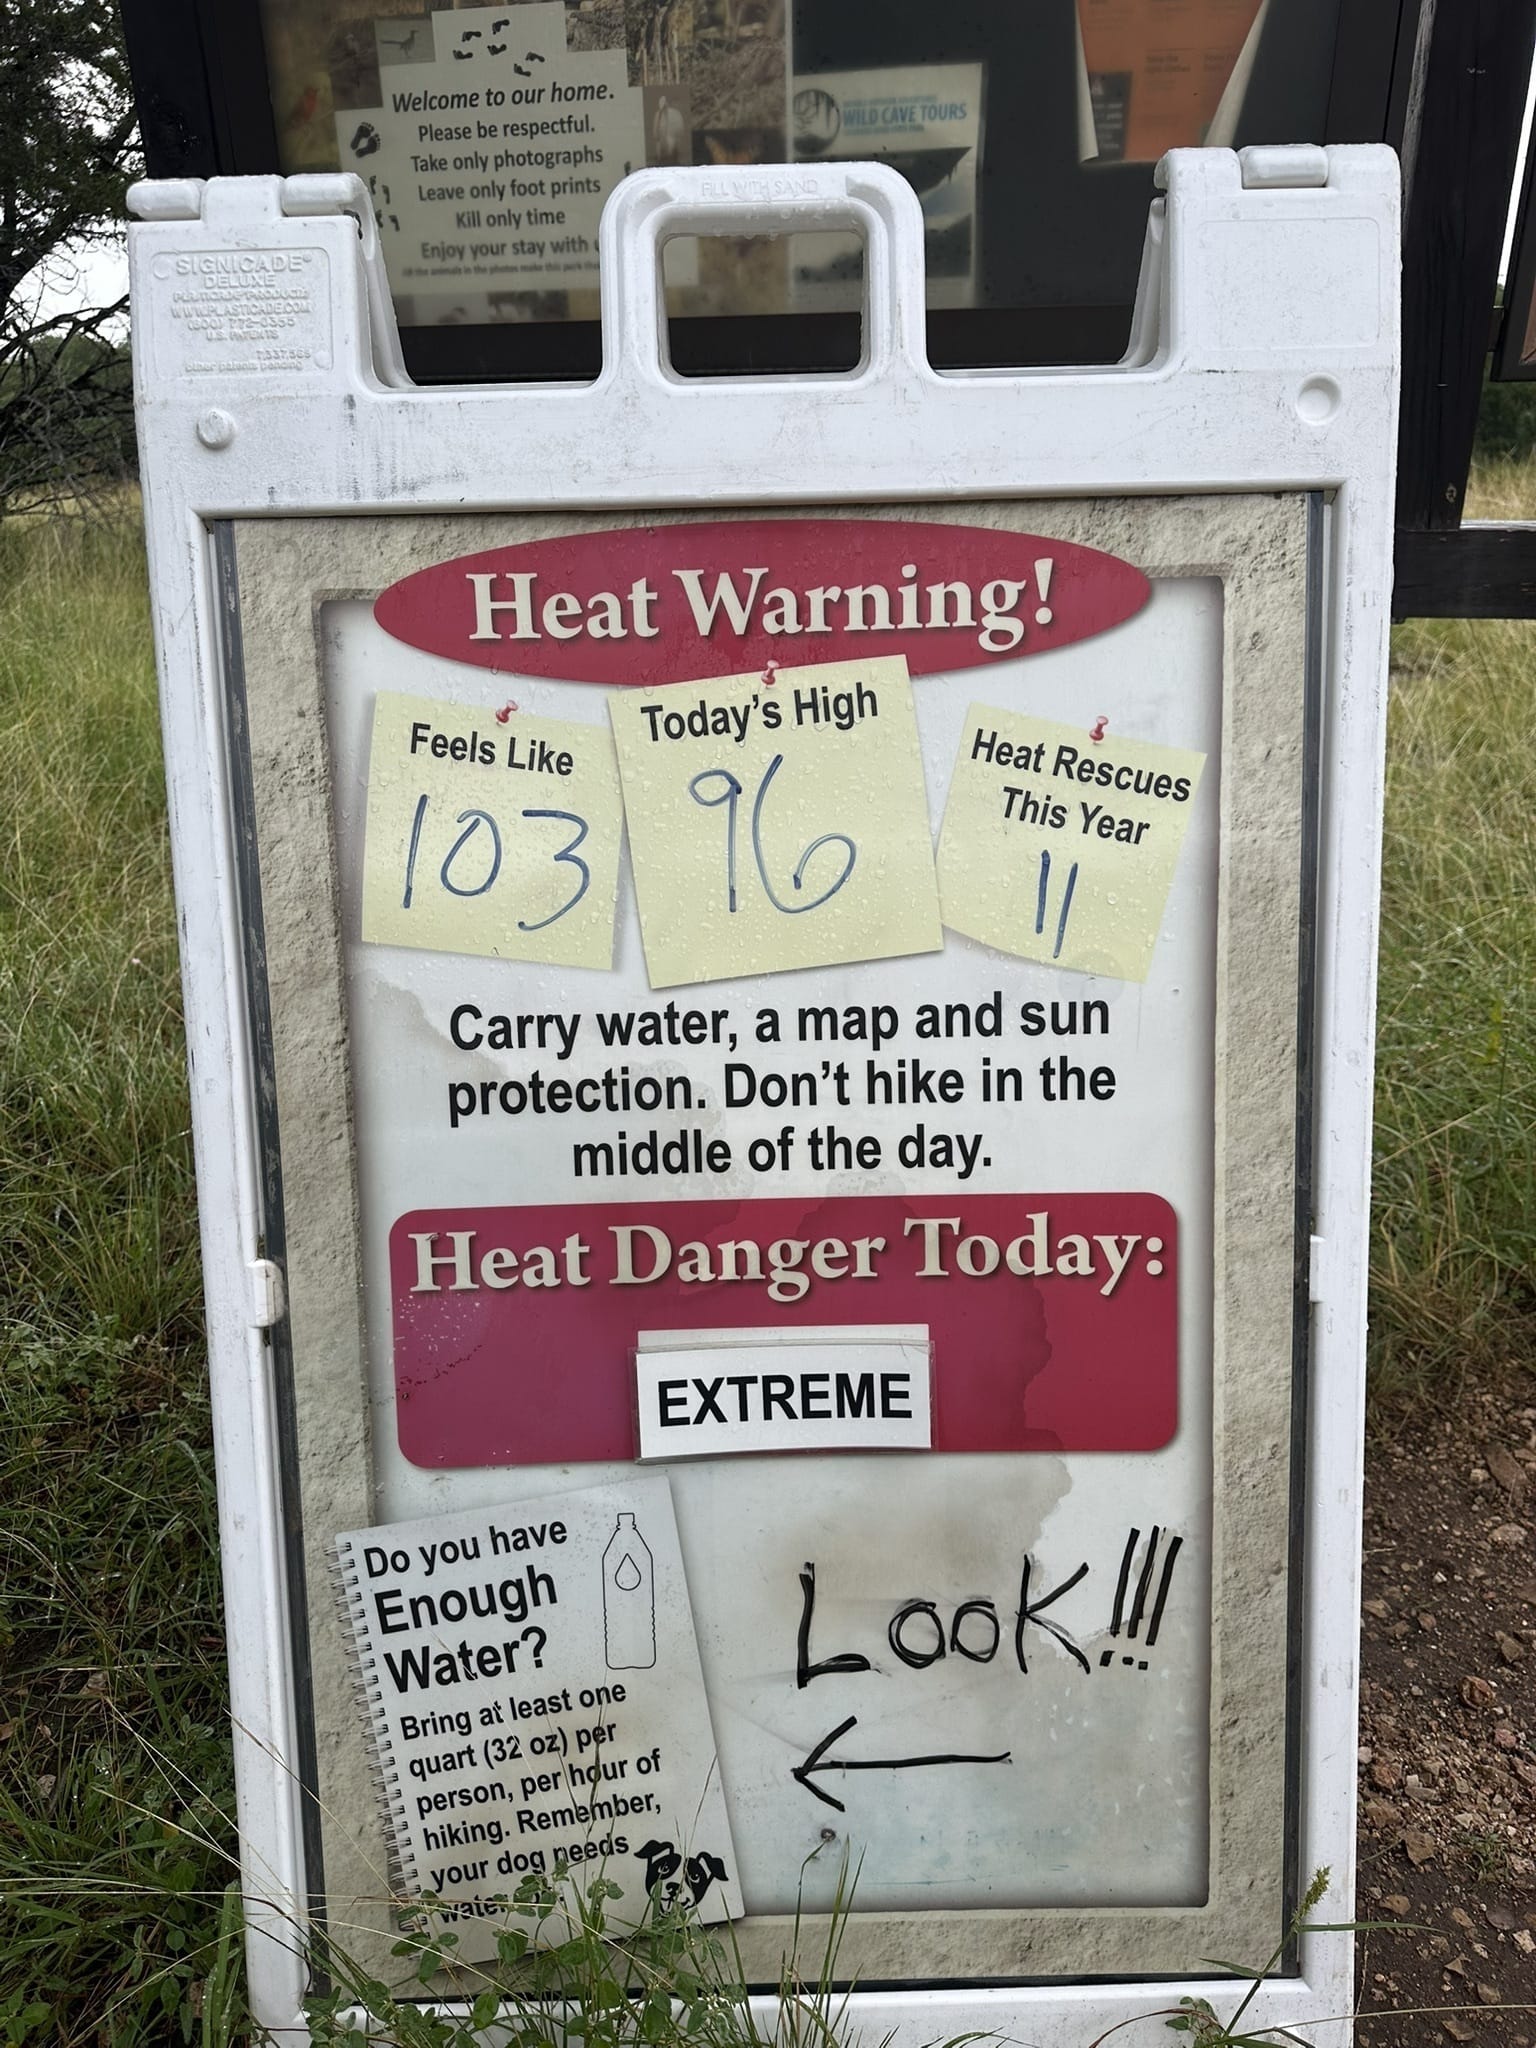 Welcome to our home.
Please be respectful.
Take only photographs
Leave only foot prints
Kill only time
Enjoy your stay with
WILD CAVE TOURS
FILL WITH SAND
SIGNICADE®
DELUXE
PLASTICADE PRODUCTS
WWW.PLASTICADE.COM
(800) 772-0355
U.S. PATENTS
other patents pending
Heat Warning!
Feels Like
103
Today's High
96
Heat Rescues
This Year
11
Carry water, a map and sun
protection. Don't hike in the
middle of the day.
Heat Danger Today:
EXTREME
Do you have
Enough
Water?
Bring at least one
quart (32 oz) per
person, per hour of
hiking. Remember,
your dog needs
LOOK!!!
←